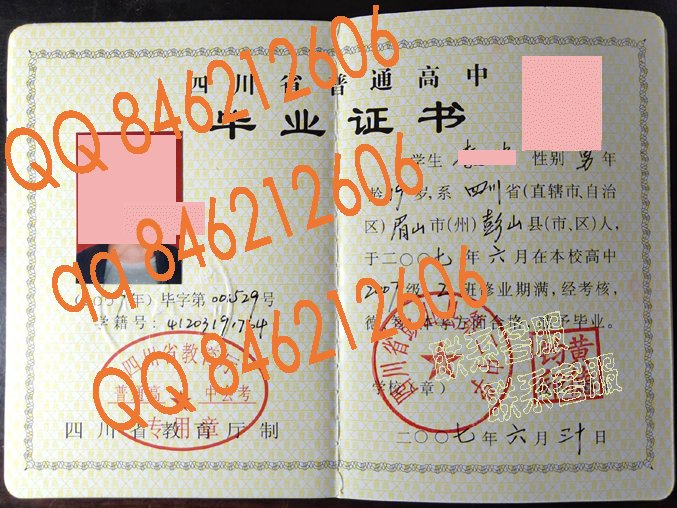 四川省普通高中
毕业证书
QQ 846212606
qq 846212606
QQ 846212606
学生
性别 男 年
龄 19 岁,系 四川 省(直辖市、自治
区) 眉山 市(州) 彭山 县(市、区)人,
于二〇〇七年六月在本校高中
2007级 班修业期满,经考核,
方面合格 予毕业。
年)毕字第 001529 号
学籍号:
四川省教育厅
普通高 中会考
专用章
四川省教育厅制
学校 章)
联系客服
联系客服
二〇〇七年六月三十日